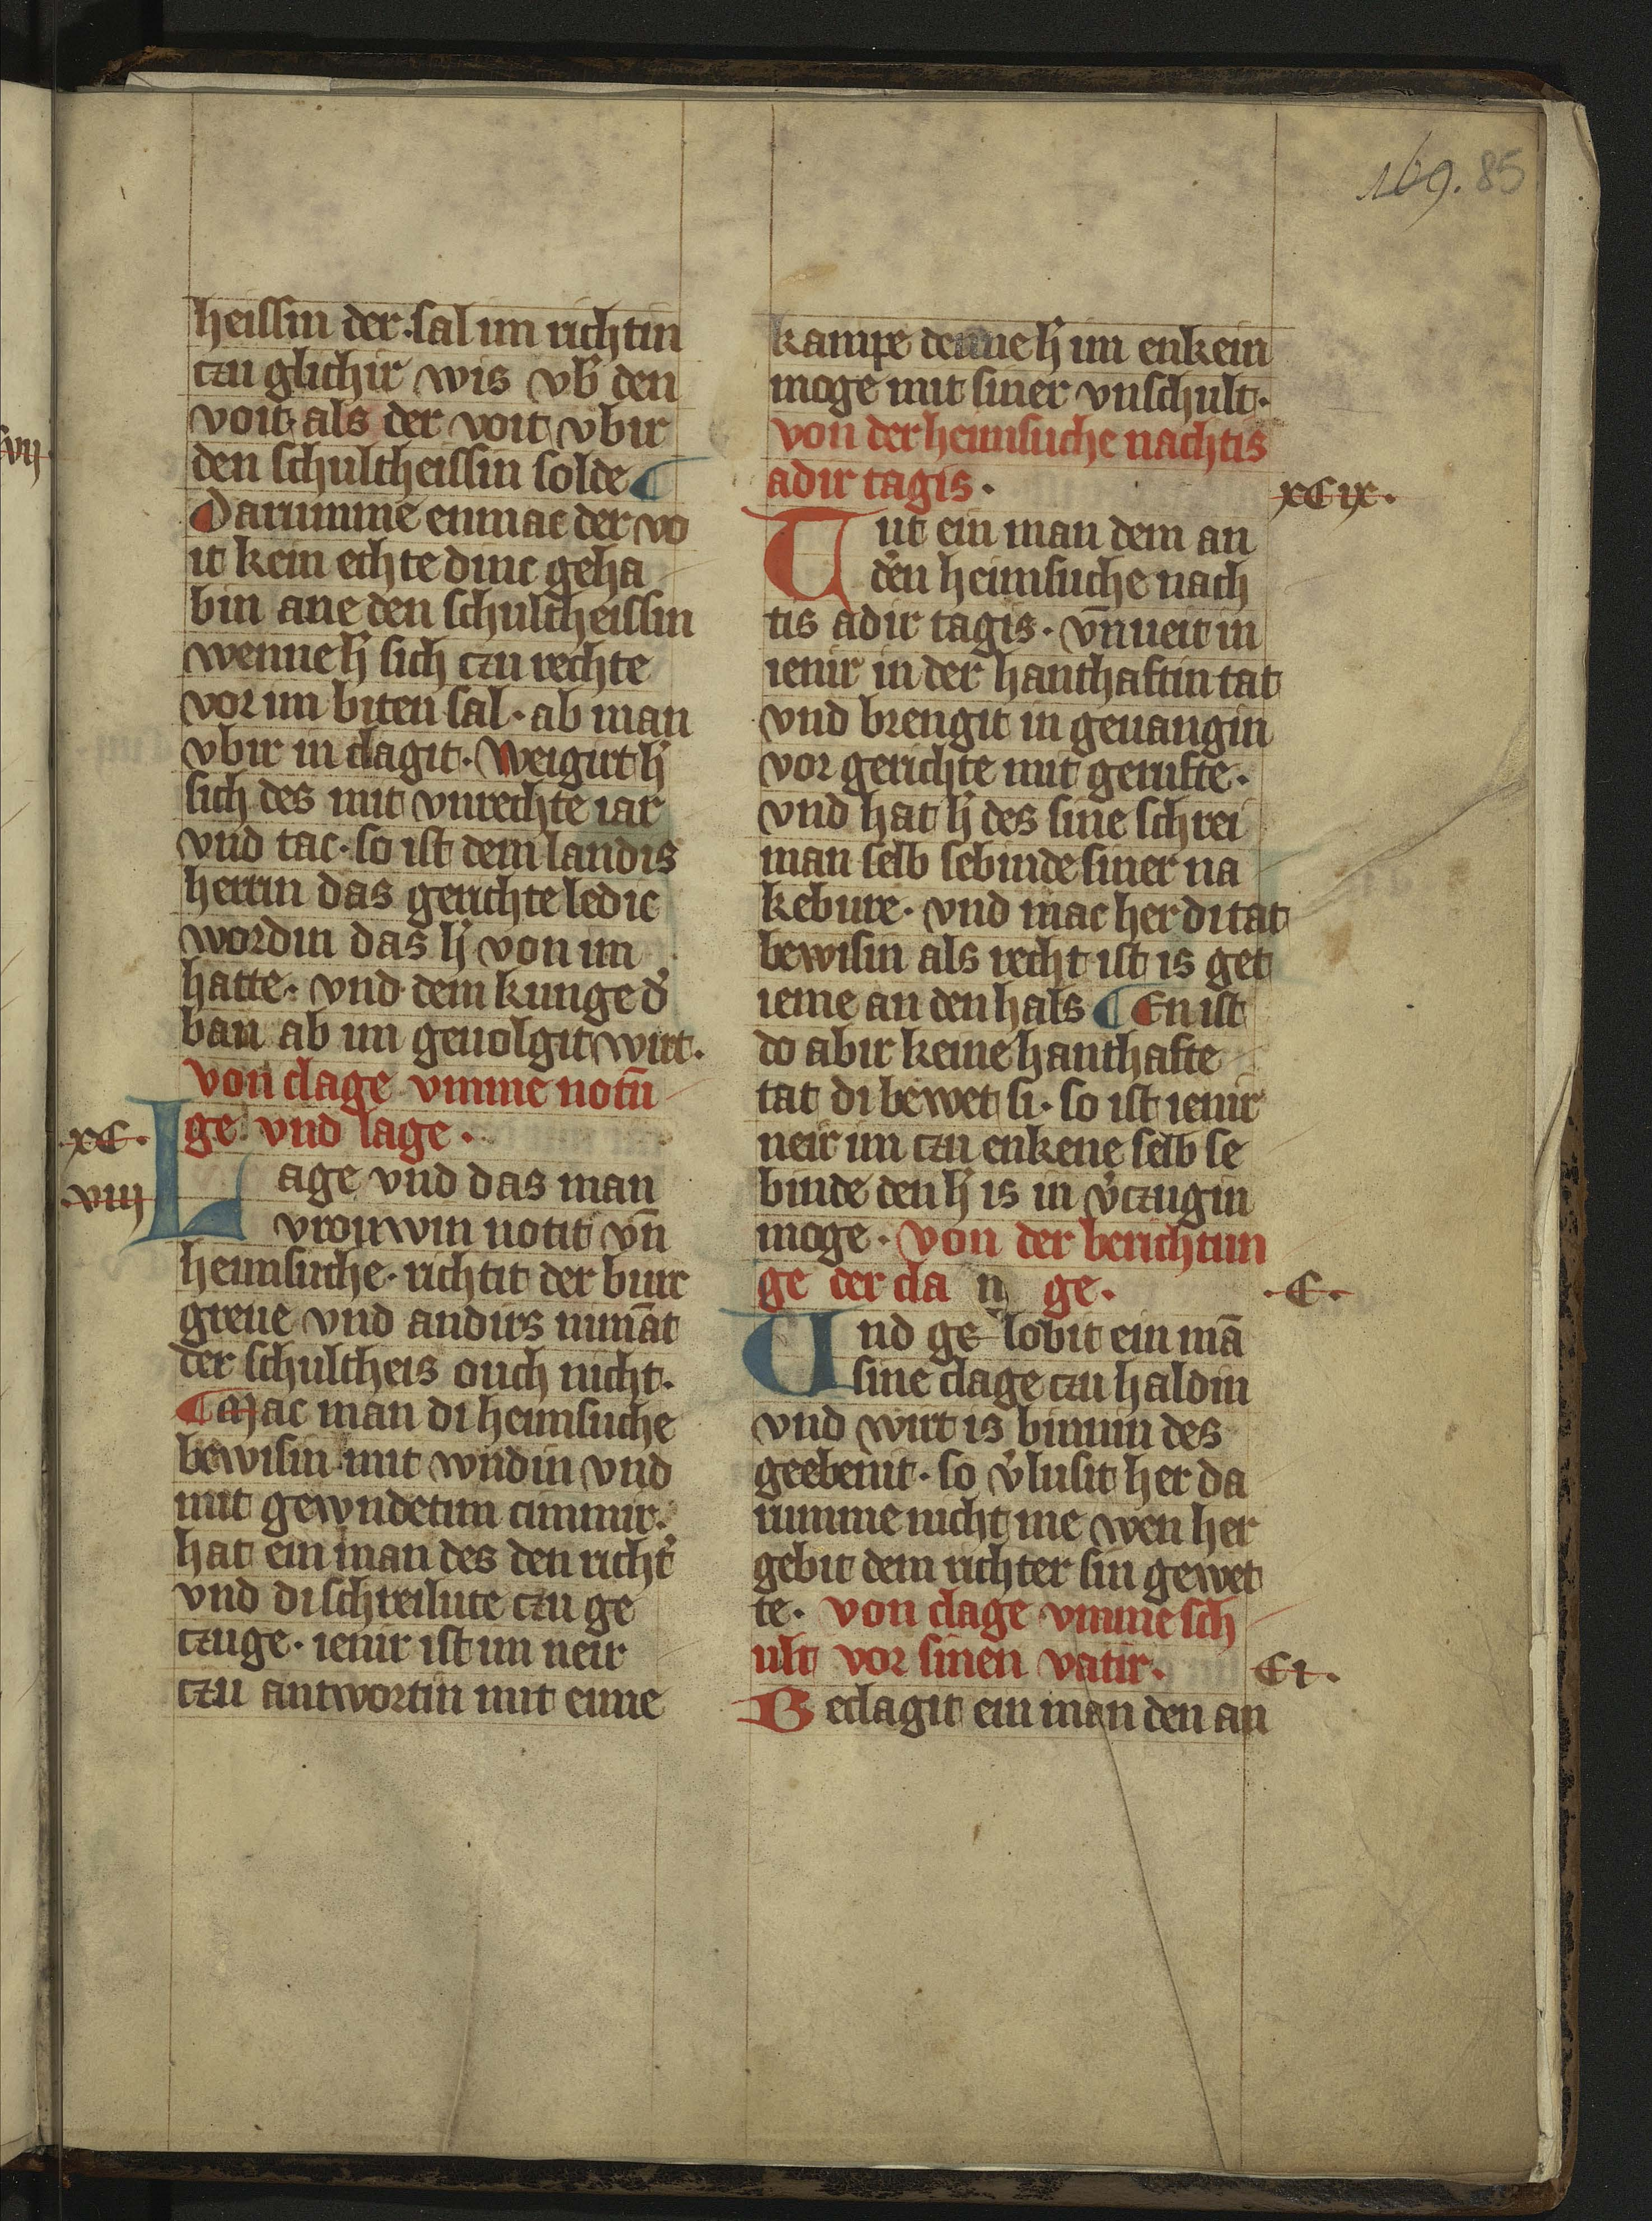 169. 85
heissin der. sal im richtin
czu glichir wis vb̄ den
voit. als der voit vbir
den schultheissin solde ¶
Darumme enmac der vo
it kein echte dinc geha
bin ane den schultheissin
wenne h̄ sich czu rechte
vor im biten sal. ab man
vbir in clagit. Weigirt h̄
sich des mit vnrechte iar
vnd tac. so ist dem landis
herrin das gerichte ledic
wordin das h̄ von im
hatte. vnd dem kunge d᷑
ban ab im geuolgit wirt.
von clage vmme notū
ge vnd lage.
xC.
viij
Lage vnd das man
vrouwin notit vn̄
heimsuche. richtit der burc
greue vnd andirs nimāt
der schultheis ouch nicht.
¶ Mac man di heimsuche
bewisin mit wndin vnd
mit gewndetim cimmir.
hat ein man des den richt᷑
vnd di schreilute czu ge
czuge. ienir ist im neir
czu antwortin mit eime
kampe denne h̄ im enkein
moge mit siner vnschult.
von der heimsuche nachtis
adir tagis.
xCix.
Tut ein man dem an
d᷑en heimsuche nach
tis adir tagis. vn̄ ueit in
ienir in der hanthaftin tat
vnd brengit in geuangin
vor gerichte mit gerufte.
vnd hat h̄ des sine schrei
man selb sebinde siner na
kebure. vnd mac her di tat
bewisin als recht ist is get
ieme an den hals ¶ En ist
do abir keine hanthafte
tat di bewet si. so ist ienir
neir im czu enkene selb se
binde den h̄ is in v᷑czugin
moge. von der berichtun
ge der cla n ge.
.C.
Und ge lobit ein mā
sine clage czu haldin
vnd wirt is binnin des
geebenit. so v᷑lusit her da
rumme nicht me wen her
gebit dem richter sin gewet
te. von clage vmme sch
ult vor sinen vatir.
Ci.
Beclagit ein man den an